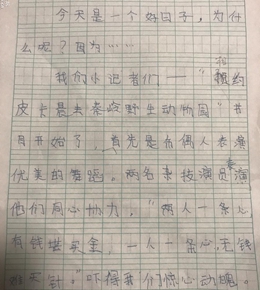 今天是一个好日子，为什
么呢？因为……
我们小记者们——“相约
皮卡悬去秦岭野生动物园”节
目开始了，首先是布偶人表演
优美的舞蹈。两名杂技演员表演
他们同心协力，“两人一条心
有钱堪买金，一人一条心，无钱
难买针”吓得我们惊心动魄。